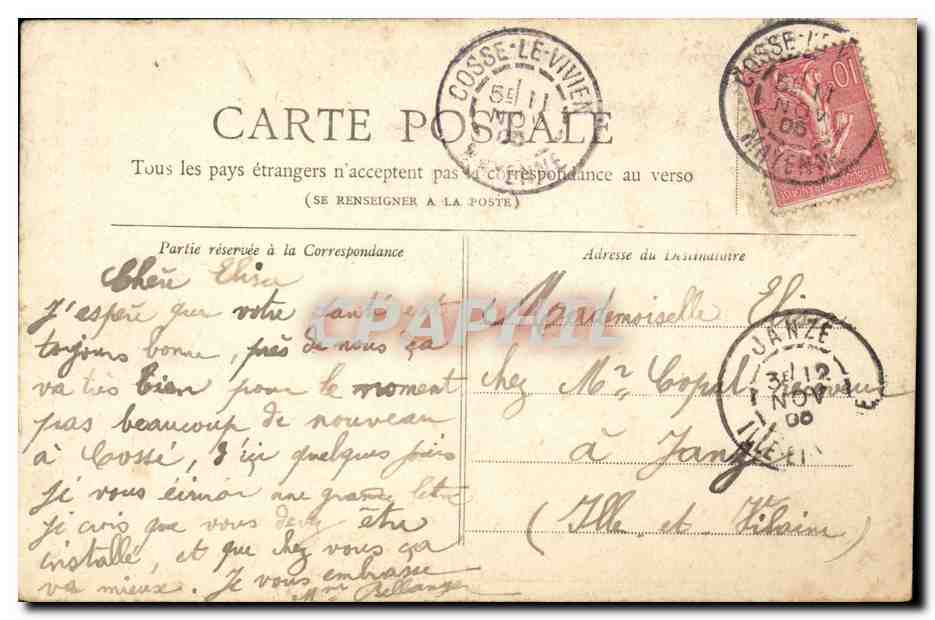 COSSE-LE-VIVIEN
5E 11
NOV
05
MAYENNE
COSSE-LE-V
5E 11
NOV
05
MAYENNE
10
CARTE POSTALE
Tous les pays étrangers n'acceptent pas la correspondance au verso
(SE RENSEIGNER A LA POSTE)
Partie réservée à la Correspondance
Adresse du Destinataire
Chère Elisa
J'espère que votre santé est
toujours bonne, près de nous ça
va très bien pour le moment
pas beaucoup de nouveau
à Cossé, d'ici quelques jours
je vous une grande lettre
je crois que vous devez être
installé, et que chez vous ça
va mieux. Je vous embrasse
Bellanger
Mademoiselle
chez Mr
à Janzé
(Ille et Vilaine)
JANZE
3E 12
NOV
05
ILLE-ET
CPAPHIL